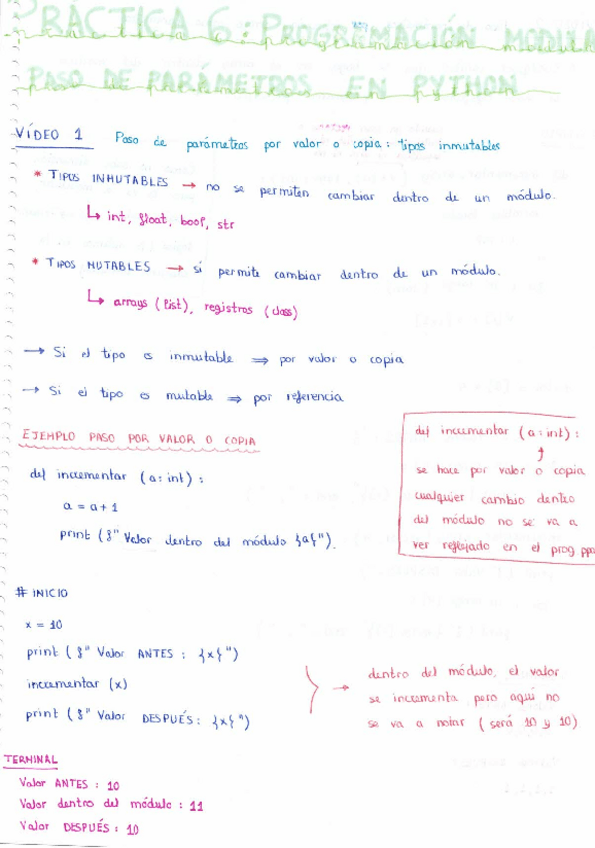 PRÁCTICA 6: PROGRAMACIÓN MODULA
PASO DE PARÁMETROS EN PYTHON
VÍDEO 1 Paso de parámetros por valor o copia: tipos inmutables
* TIPOS INMUTABLES → no se permiten cambiar dentro de un módulo.
↳ int, float, bool, str
* TIPOS MUTABLES → sí permite cambiar dentro de un módulo.
↳ arrays (list), registros (class)
→ Si el tipo es inmutable ⇒ por valor o copia
→ Si el tipo es mutable ⇒ por referencia
EJEMPLO PASO POR VALOR O COPIA
def incrementar (a: int):
a = a + 1
print (f" Valor dentro del módulo {a}").
def incrementar (a: int):
↑
se hace por valor o copia
cualquier cambio dentro
del módulo no se va a
ver reflejado en el prog.ppa
# INICIO
x = 10
print (f" Valor ANTES : {x}")
incrementar (x)
print (f" Valor DESPUÉS: {x}")
→ dentro del módulo, el valor
se incrementa pero aquí no
se va a notar (será 10 y 10).
TERMINAL
Valor ANTES : 10
Valor dentro del módulo : 11
Valor DESPUÉS : 10